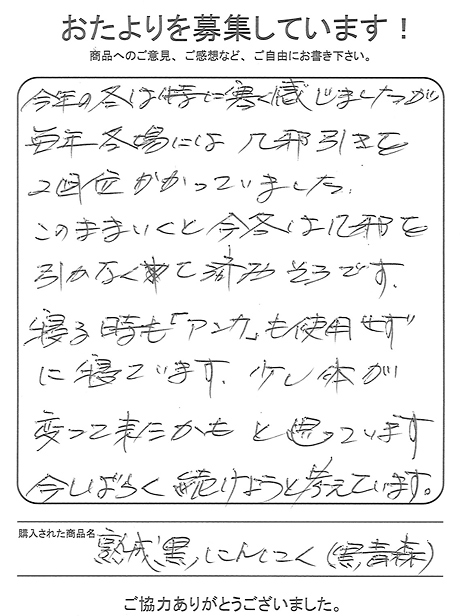 おたよりを募集しています！
商品へのご意見、ご感想など、ご自由にお書き下さい。
今年の冬は特に寒く感じましたが
毎年冬場には几邪引きを
2回位かかっていました.
このままいくと今冬は几邪を
引かなくて済みそうです.
寝る時も「アンカ」も使用せず
に寝ています. 少し体が
変って来たかもと思っています
今しばらく続けようと考えています。
購入された商品名
熟成黒にんにく(黒青森)
ご協力ありがとうございました。